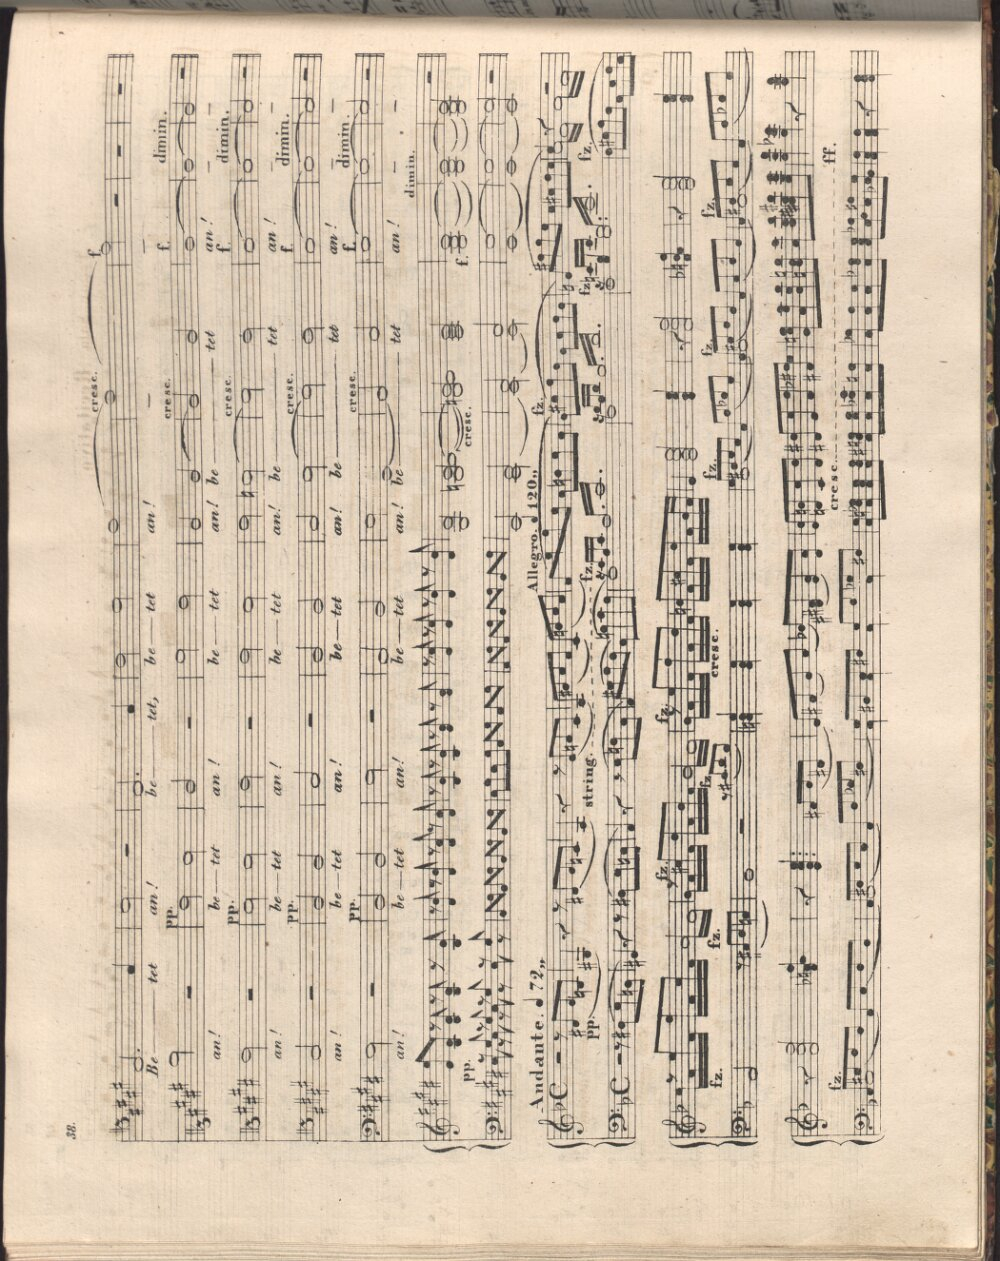 38.
f.
cresc.
Be — tet an! be — tet, be — tet an!
pp. cresc. f. dimin.
an! be — tet an! be — tet an! be — tet an!
pp. cresc. f. dimin.
an! be — tet an! be — tet an! be — tet an!
pp. cresc. f. dimin.
an! be — tet an! be — tet an! be — tet an!
pp. cresc. f. dimin.
an! be — tet an! be — tet an! be — tet an!
dimin.
pp. cresc. f.
Andante. 72„ Allegro. 120„
fz.
pp. string. fz. fz. fz.
fz. fz.
fz. fz. fz. cresc. fz. fz. fz.
fz. cresc. ff.